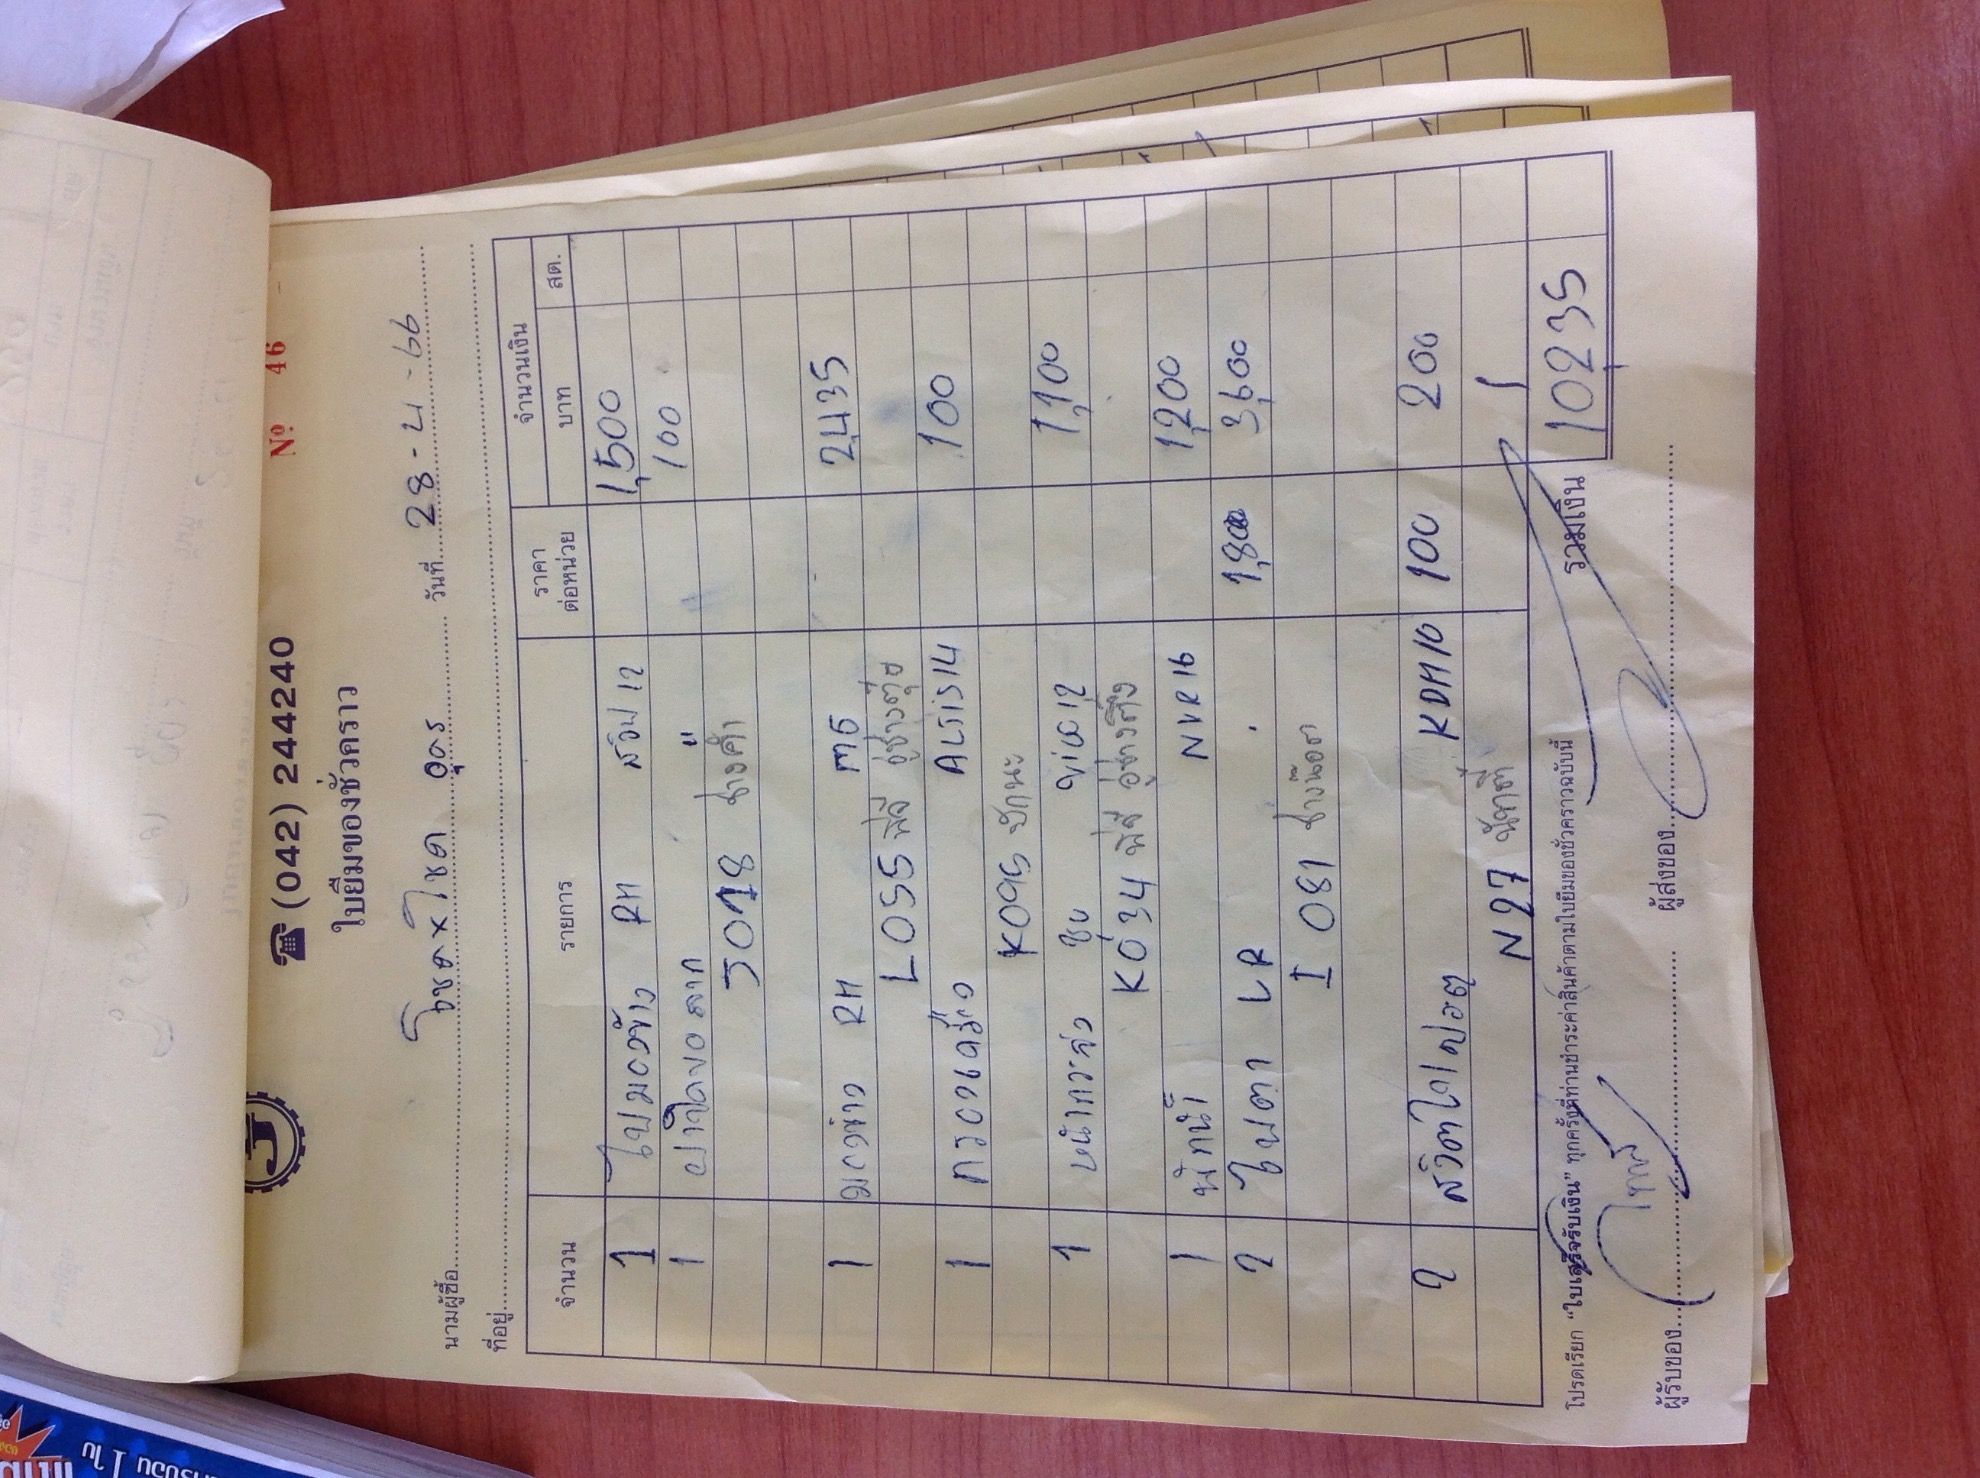 ☎ (042) 244240
ใบยืมของชั่วคราว
Nº 46
นามผู้ซื้อ โชคxโชค อุดร วันที่ 28-4-66
ที่อยู่
จำนวน รายการ ราคาต่อหน่วย จำนวนเงิน
บาท สต.
1 ไฟมองข้าง RH 1,500
1 100
J078 ช่างคำ
1 มองข้าง RH 2,435
L055 พี่ลี อู่ช่างตุ่ย
1 กรองเครื่อง ALTIS14 100
K095
1 หน้ากระจัง VIGO12 1,100
K034 พี่ลี อู่ช่าง
1 พักน้ำ NVR16 1,200
2 ไฟตา LR 1,800 3,600
I 081 ช่างน๊อต
2 สวิตไกปอตู KDH10 100 200
N27
รวมเงิน 10235
โปรดเรียก "ใบเสร็จรับเงิน" ทุกครั้งที่ท่านชำระค่าสินค้าตามใบยืมของชั่วคราวฉบับนี้
ผู้รับของ ผู้ส่งของ